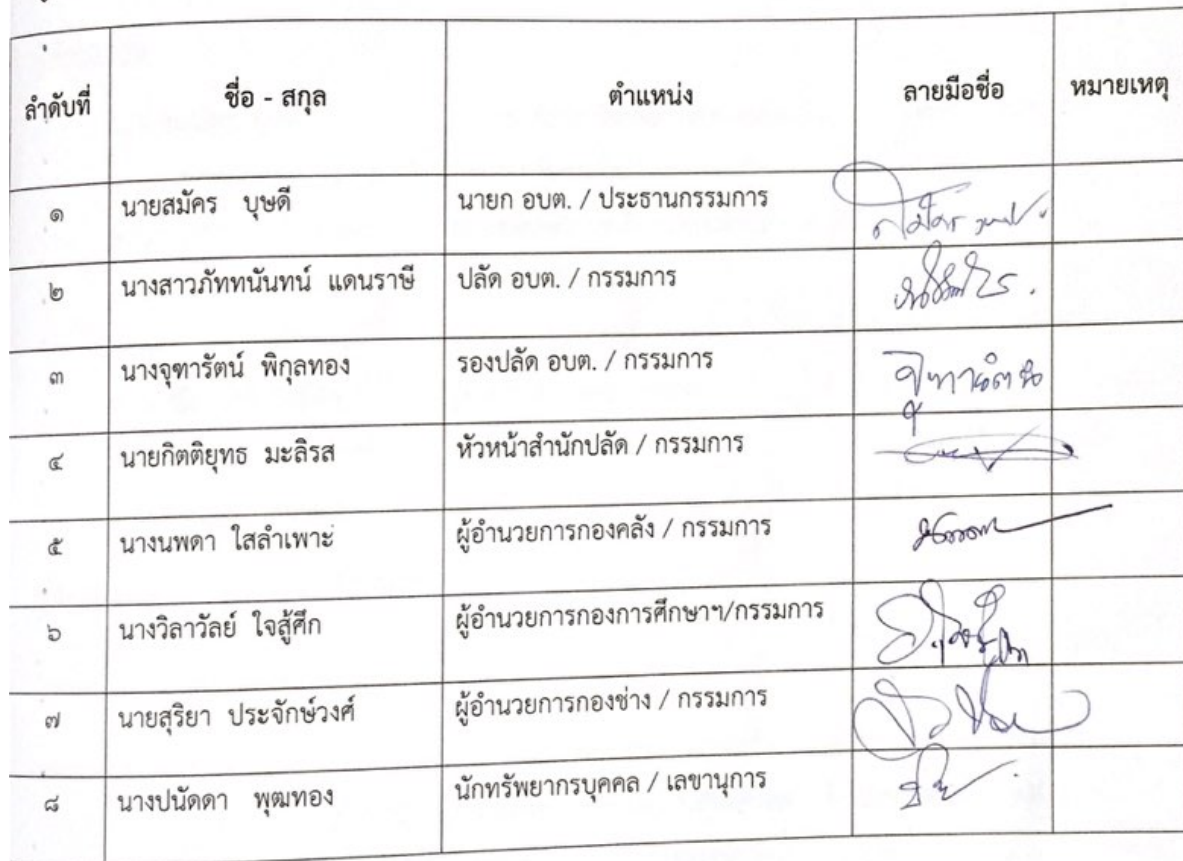 ลำดับที่ ชื่อ - สกุล ตำแหน่ง ลายมือชื่อ หมายเหตุ
๑ นายสมัคร บุษดี นายก อบต. / ประธานกรรมการ
๒ นางสาวภัททนันทน์ แดนราษี ปลัด อบต. / กรรมการ
๓ นางจุฑารัตน์ พิกุลทอง รองปลัด อบต. / กรรมการ จุฑารัตน์
๔ นายกิตติยุทธ มะลิรส หัวหน้าสำนักปลัด / กรรมการ
๕ นางนพดา ใสลำเพาะ ผู้อำนวยการกองคลัง / กรรมการ
๖ นางวิลาวัลย์ ใจสู้ศึก ผู้อำนวยการกองการศึกษาฯ/กรรมการ
๗ นายสุริยา ประจักษ์วงศ์ ผู้อำนวยการกองช่าง / กรรมการ
๘ นางปนัดดา พุฒทอง นักทรัพยากรบุคคล / เลขานุการ